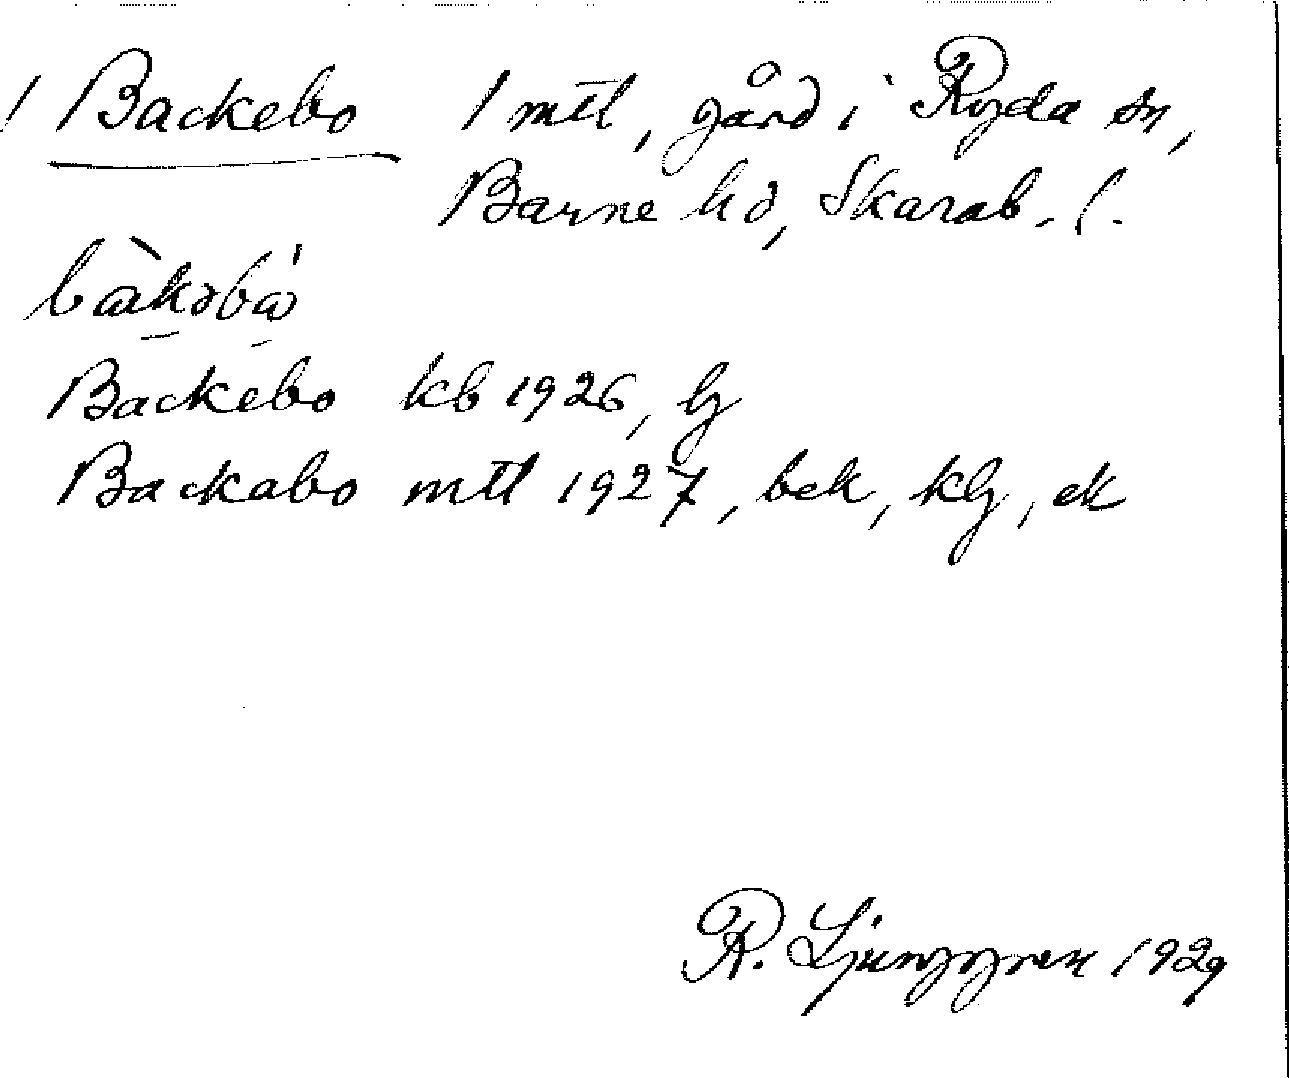 / Backebo 1 mtl, gård i Ryda sn,
Barne hd, Skarab. l.
Backebo kb 1926, lj
Backabo mtl 1927, bek, klj, ek
R. Ljunggren 1929